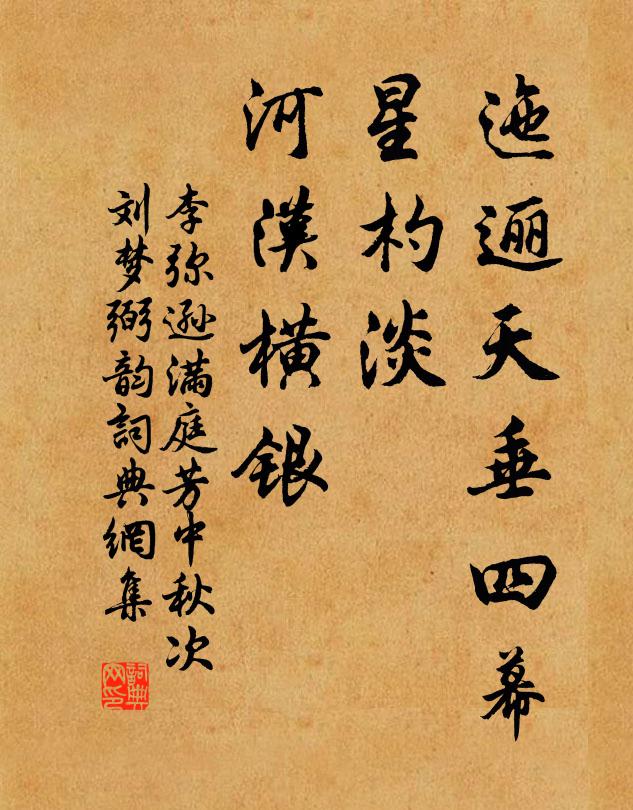 迤逦天垂四幕
星杓淡
河漢横银
李弥遜满庭芳中秋次
刘梦弼韵詞典網集
詞典
网印